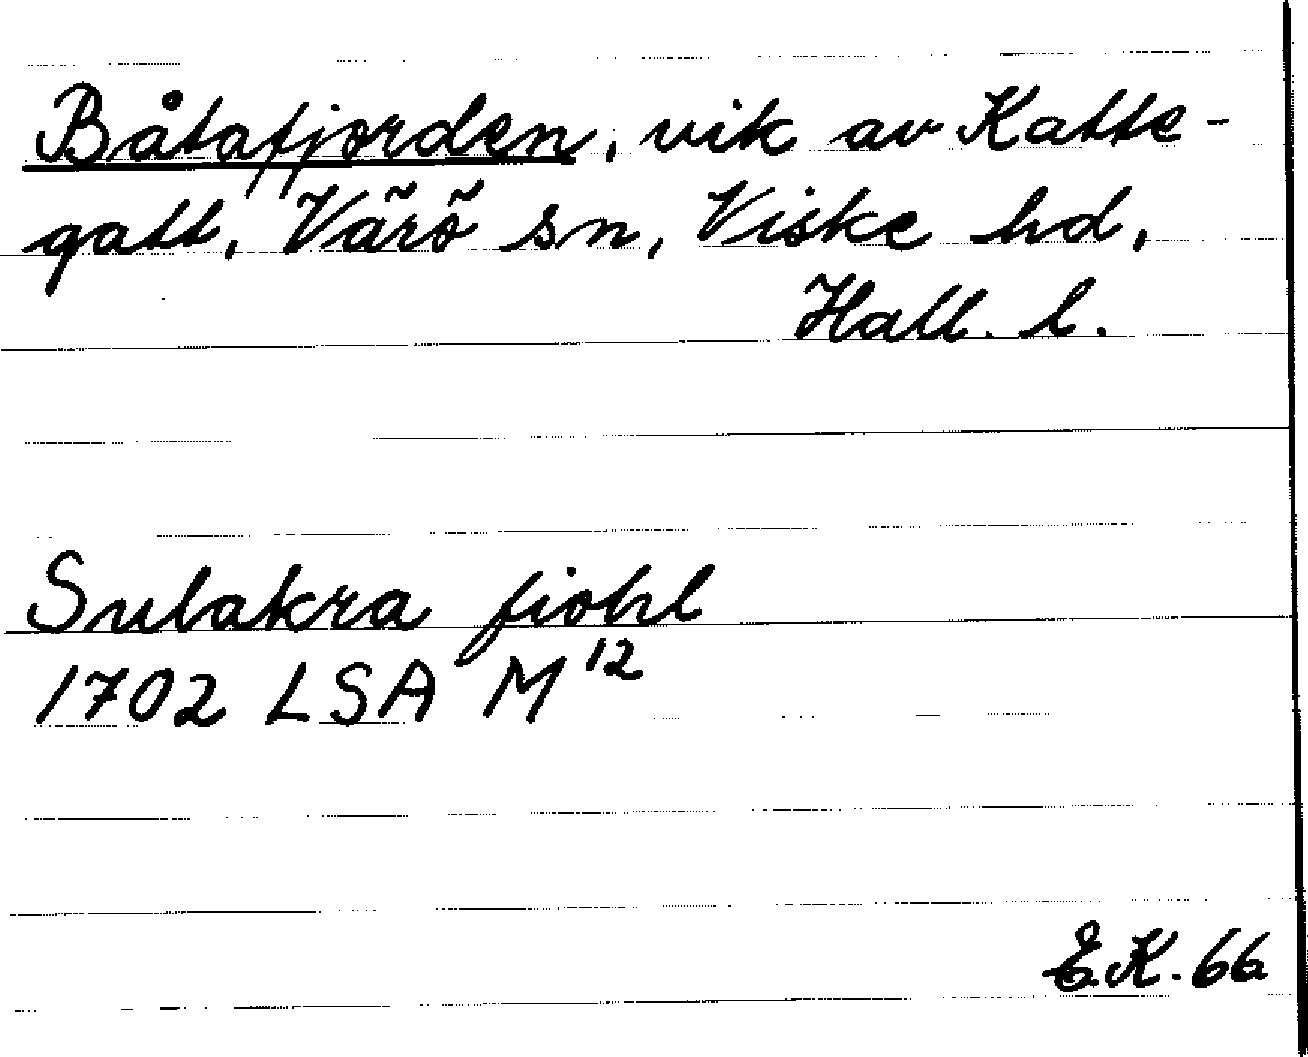 Båtafjorden, vik av Katte-
gatt, Värö sn, Viske hd,
Hall. l.
Sulakra fiohl
1702 LSA M¹²
E.K. 66